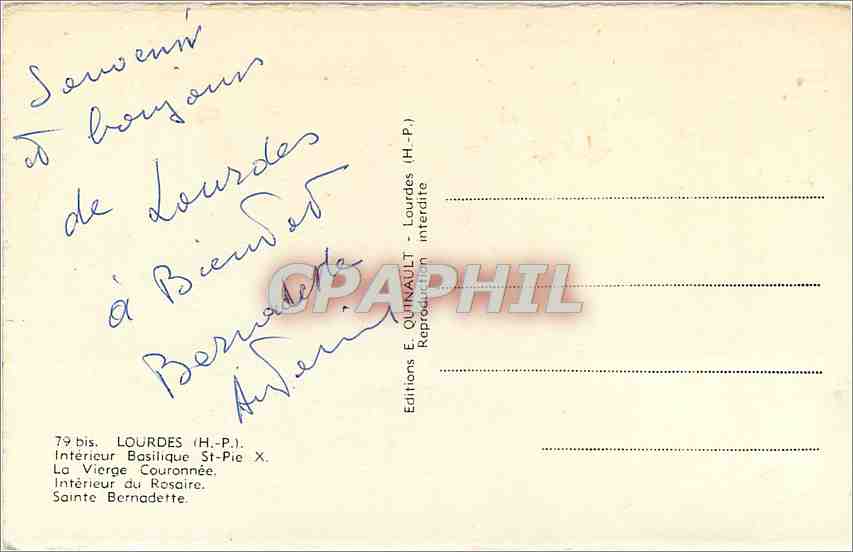 Souvenir
et bonjour
de Lourdes
à Bientôt
Bernadette
79 bis. LOURDES (H.-P.).
Intérieur Basilique St-Pie X.
La Vierge Couronnée.
Intérieur du Rosaire.
Sainte Bernadette.
Editions E. QUINAULT - Lourdes (H.-P.)
Reproduction interdite
CPAPHIL